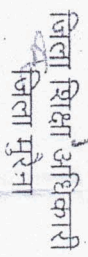 जिला शिक्षा अधिकारी
जिला मुरैना